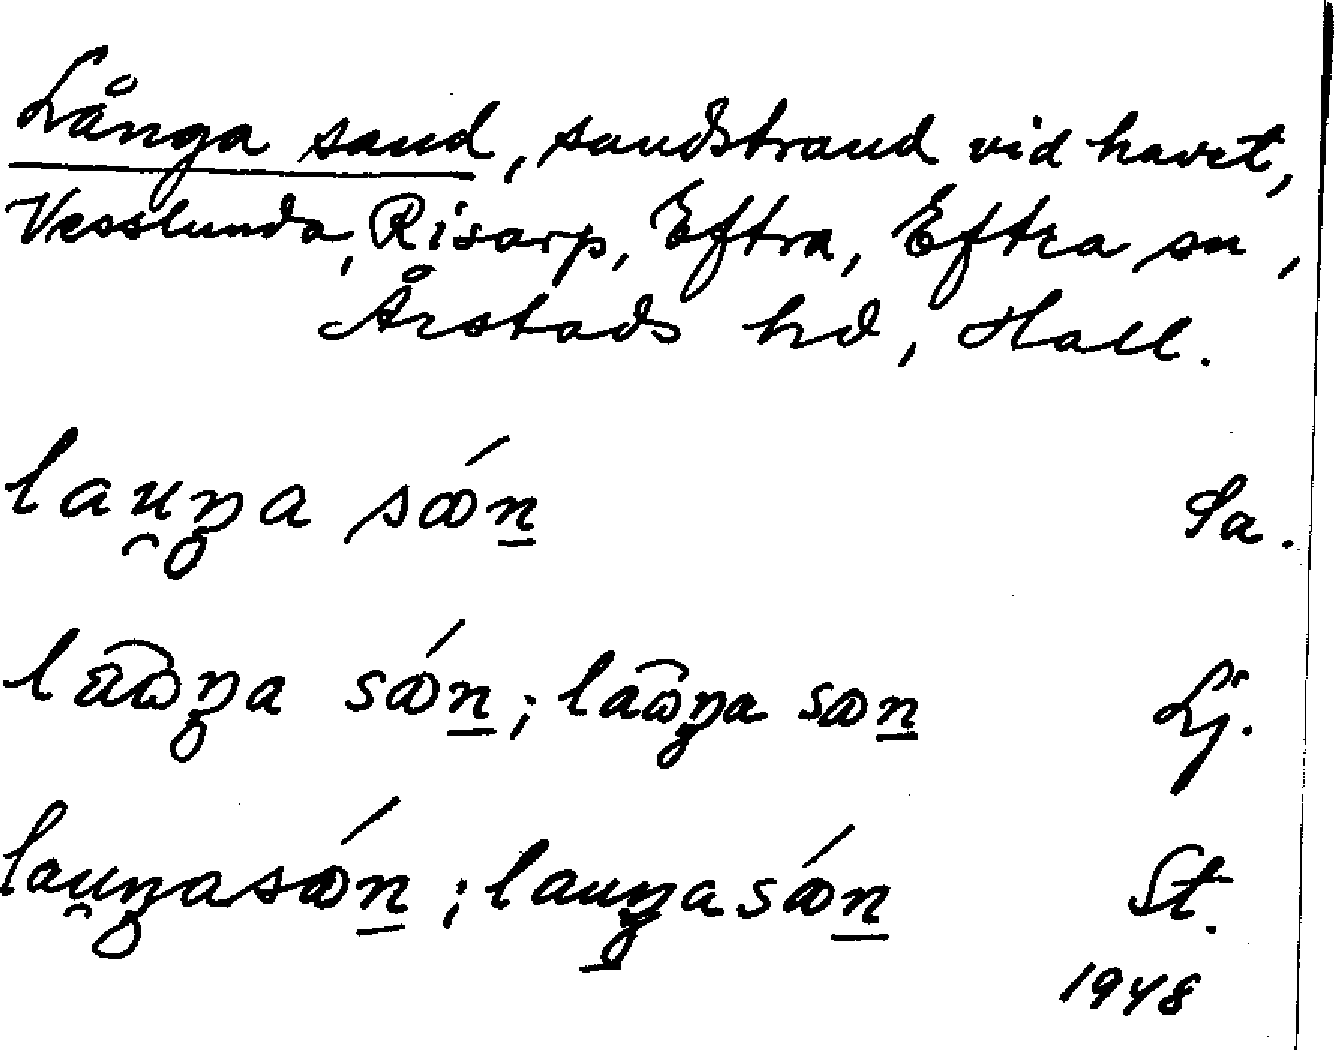 Långa sand, sandstrand vid havet,
Vesslunda, Risarp, Eftra, Eftra sn,
Årstads hd, Hall.
lau̯ŋa sɷ́n̲ Sa.
la͡ɷŋa sɷ́n̲; la͡ɷŋa sɷn̲ Lj.
lau̯ŋasɷ́n̲; lauŋasɷ́n̲ St.
1948